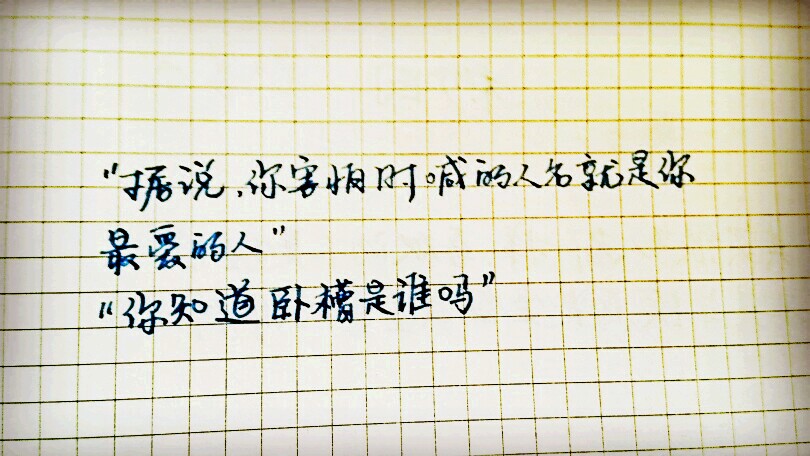 "据说，你害怕时喊的人名就是你
最爱的人"
"你知道卧槽是谁吗"